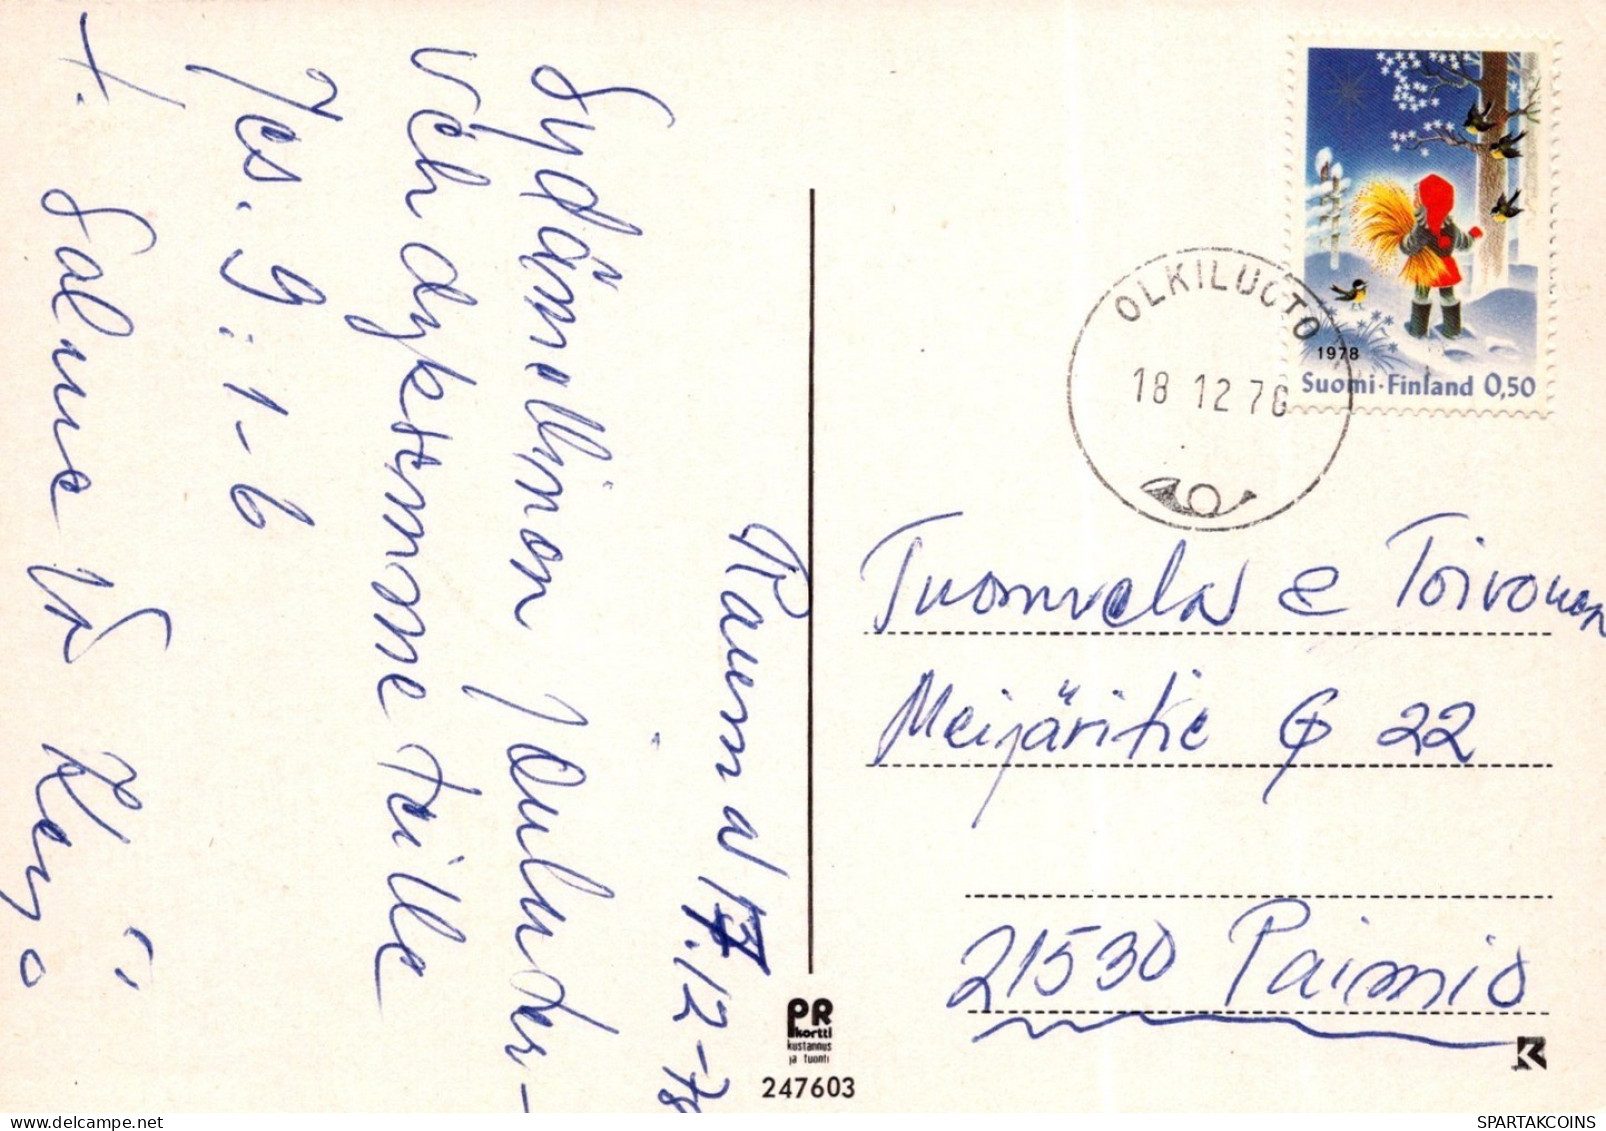 Rauma 17.12-78
Sydämellinen Joulunter-
vehdyksemme teille
Jes. 9:1-6
t. Salme
1978
Suomi·Finland 0,50
OLKILUOTO
18 12 78
Tuomela & Toivonen
Meijäritie 22
21530 Paimio
PR
kortti
kustannus
ja tuonti
247603
SPARTAKCOINS.COM